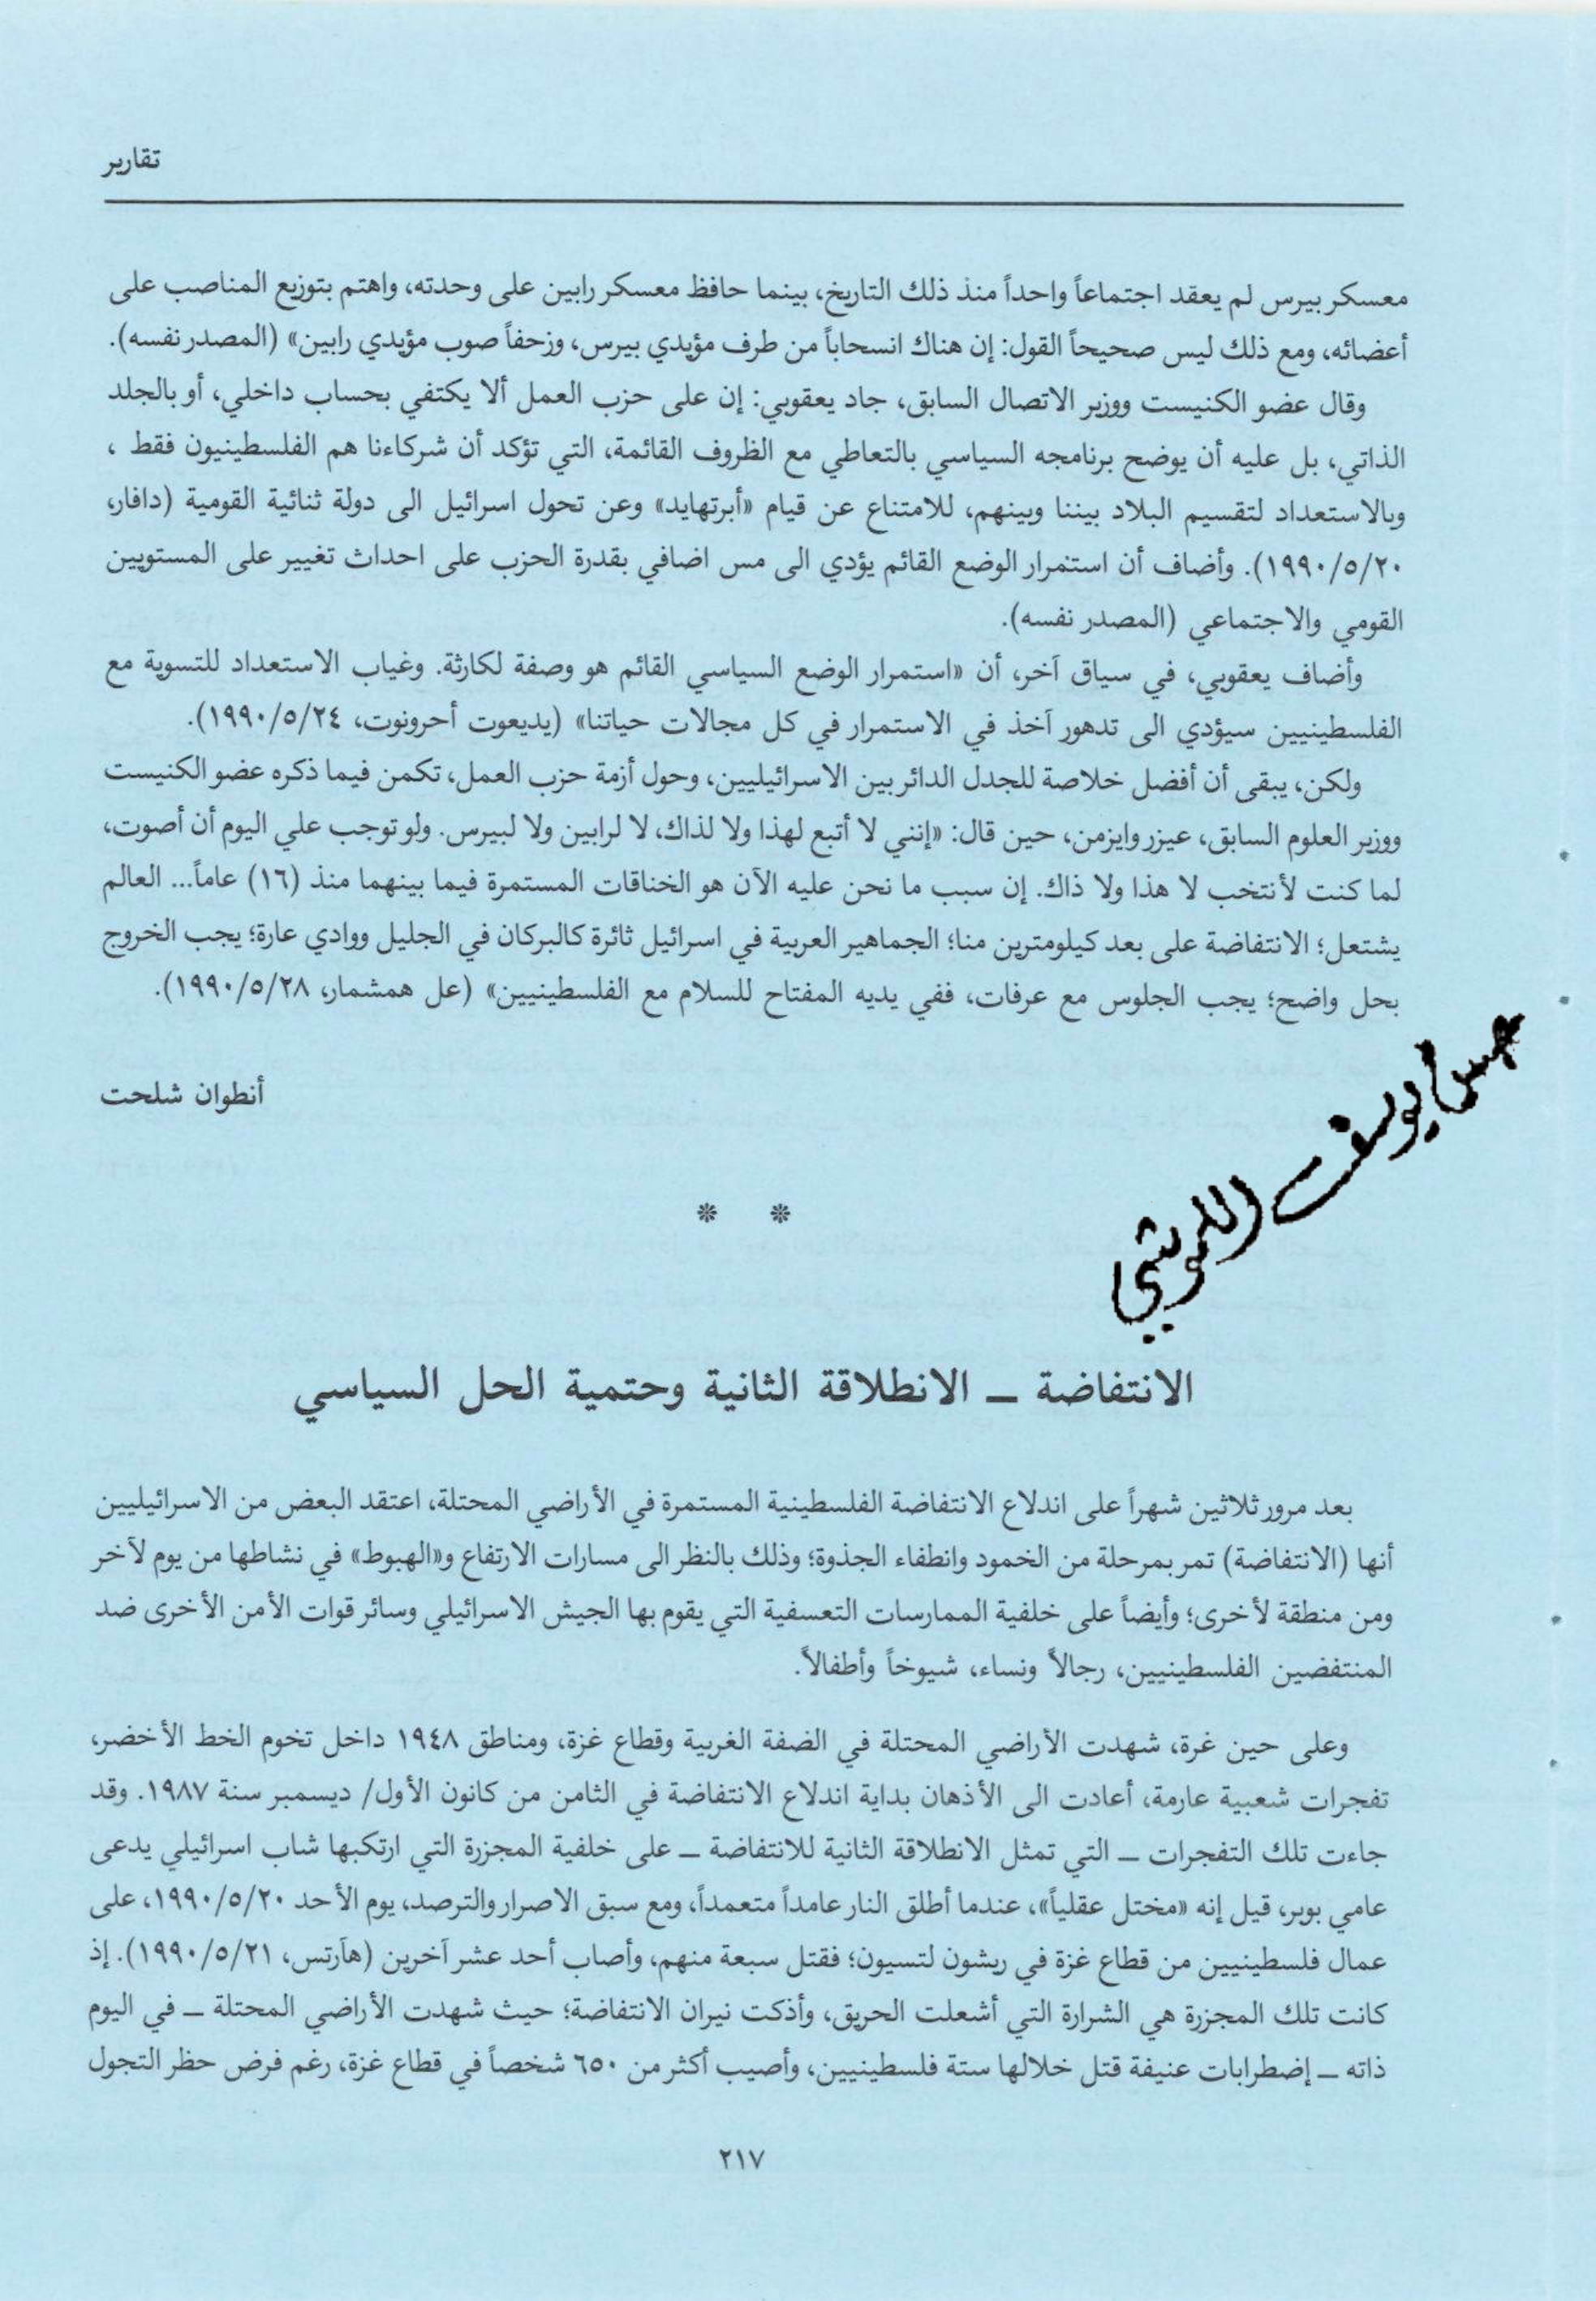 تقارير
معسكر بيرس لم يعقد اجتماعاً واحداً منذ ذلك التاريخ، بينما حافظ معسكر رابين على وحدته، واهتم بتوزيع المناصب على
أعضائه، ومع ذلك ليس صحيحاً القول: إن هناك انسحاباً من طرف مؤيدي بيرس، وزحفاً صوب مؤيدي رابين» (المصدر نفسه).
وقال عضو الكنيست ووزير الاتصال السابق، جاد يعقوبي: إن على حزب العمل ألا يكتفي بحساب داخلي، أو بالجلد
الذاتي، بل عليه أن يوضح برنامجه السياسي بالتعاطي مع الظروف القائمة، التي تؤكد أن شركاءنا هم الفلسطينيون فقط ،
وبالاستعداد لتقسيم البلاد بيننا وبينهم، للامتناع عن قيام «أبرتهايد» وعن تحول اسرائيل الى دولة ثنائية القومية (دافار،
٢٠/٥/١٩٩٠). وأضاف أن استمرار الوضع القائم يؤدي الى مس اضافي بقدرة الحزب على احداث تغيير على المستويين
القومي والاجتماعي (المصدر نفسه).
وأضاف يعقوبي، في سياق آخر، أن «استمرار الوضع السياسي القائم هو وصفة لكارثة. وغياب الاستعداد للتسوية مع
الفلسطينيين سيؤدي الى تدهور آخذ في الاستمرار في كل مجالات حياتنا» (يديعوت أحرونوت، ٢٤/٥/١٩٩٠).
ولكن، يبقى أن أفضل خلاصة للجدل الدائر بين الاسرائيليين، وحول أزمة حزب العمل، تكمن فيما ذكره عضو الكنيست
ووزير العلوم السابق، عيزر وايزمن، حين قال: «إنني لا أتبع لهذا ولا لذاك، لا لرابين ولا لبيرس. ولو توجب علي اليوم أن أصوت،
لما كنت لأنتخب لا هذا ولا ذاك. إن سبب ما نحن عليه الآن هو الخناقات المستمرة فيما بينهما منذ (١٦) عاماً... العالم
يشتعل؛ الانتفاضة على بعد كيلومترين منا؛ الجماهير العربية في اسرائيل ثائرة كالبركان في الجليل ووادي عارة؛ يجب الخروج
بحل واضح؛ يجب الجلوس مع عرفات، ففي يديه المفتاح للسلام مع الفلسطينيين» (عل همشمار، ٢٨/٥/١٩٩٠).
أنطوان شلحت
* *
الانتفاضة ــ الانطلاقة الثانية وحتمية الحل السياسي
بعد مرور ثلاثين شهراً على اندلاع الانتفاضة الفلسطينية المستمرة في الأراضي المحتلة، اعتقد البعض من الاسرائيليين
أنها (الانتفاضة) تمر بمرحلة من الخمود وانطفاء الجذوة؛ وذلك بالنظر الى مسارات الارتفاع و«الهبوط» في نشاطها من يوم لآخر
ومن منطقة لأخرى؛ وأيضاً على خلفية الممارسات التعسفية التي يقوم بها الجيش الاسرائيلي وسائر قوات الأمن الأخرى ضد
المنتفضين الفلسطينيين، رجالاً ونساء، شيوخاً وأطفالاً.
وعلى حين غرة، شهدت الأراضي المحتلة في الضفة الغربية وقطاع غزة، ومناطق ١٩٤٨ داخل تخوم الخط الأخضر،
تفجرات شعبية عارمة، أعادت الى الأذهان بداية اندلاع الانتفاضة في الثامن من كانون الأول/ ديسمبر سنة ١٩٨٧. وقد
جاءت تلك التفجرات ــ التي تمثل الانطلاقة الثانية للانتفاضة ــ على خلفية المجزرة التي ارتكبها شاب اسرائيلي يدعى
عامي بوبر، قيل إنه «مختل عقلياً»، عندما أطلق النار عامداً متعمداً، ومع سبق الاصرار والترصد، يوم الأحد ٢٠/٥/١٩٩٠، على
عمال فلسطينيين من قطاع غزة في ريشون لتسيون؛ فقتل سبعة منهم، وأصاب أحد عشر آخرين (هآرتس، ٢١/٥/١٩٩٠). إذ
كانت تلك المجزرة هي الشرارة التي أشعلت الحريق، وأذكت نيران الانتفاضة؛ حيث شهدت الأراضي المحتلة ــ في اليوم
ذاته ــ إضطرابات عنيفة قتل خلالها ستة فلسطينيين، وأصيب أكثر من ٦٥٠ شخصاً في قطاع غزة، رغم فرض حظر التجول
٢١٧